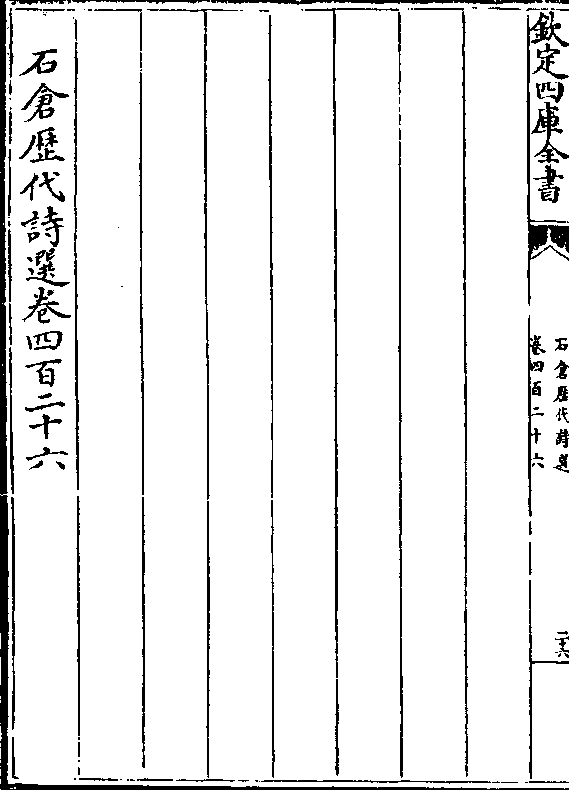 欽定四庫全書
石倉歷代詩選
卷四百二十六
二十六
石倉歷代詩選卷四百二十六